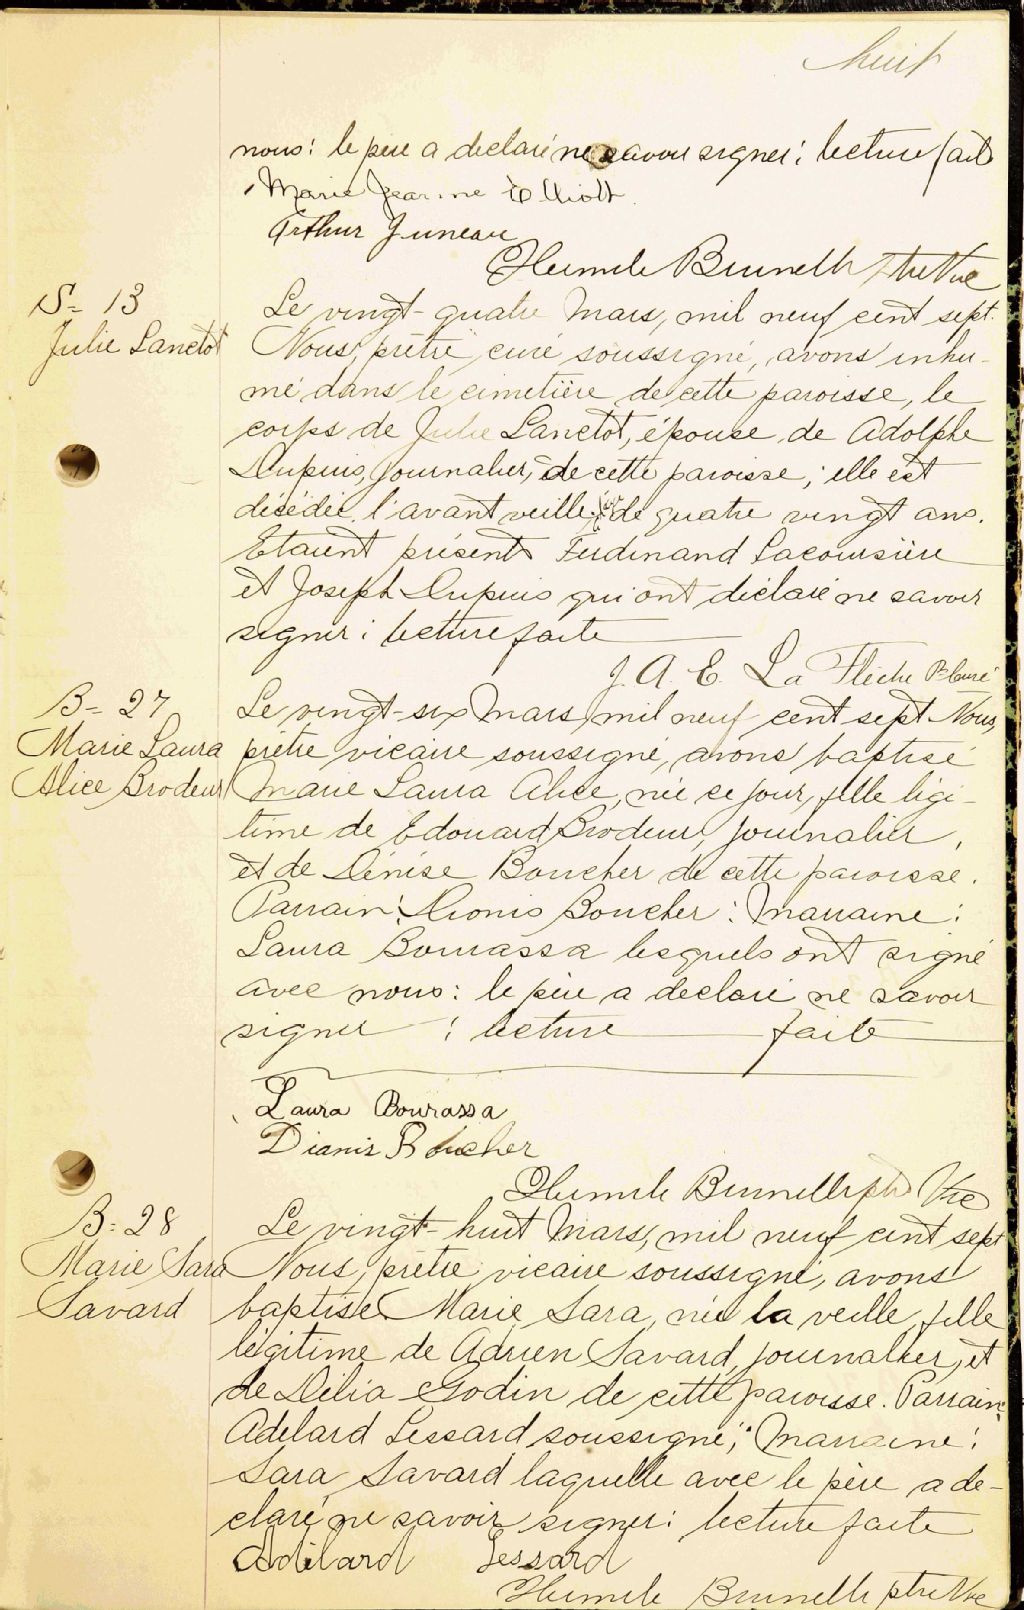 huit
nous: le père a declaré ne savoir signer: lecture faite
Marie Jeanne Elliott
Arthur Juneau
Humile Brunelle Ptre Vic
S- 13
Julie Lanctot
Le vingt-quatre Mars, mil neuf cent sept.
Nous, prêtre curé soussigné, avons inhu-
mé dans le cimetière de cette paroisse, le
corps de Julie Lanctot, épouse de Adolphe
Dupuis, journalier, de cette paroisse; elle est
décédée l'avant veille de quatre vingt ans.
Etaient présents Ferdinand Lacoursière
et Joseph Dupuis qui ont déclaré ne savoir
signer: lecture faite
J. A. E. La Flèche Ptre Curé
B- 27
Marie Laura
Alice Brodeur
Le vingt-six Mars, mil neuf cent sept Nous,
prêtre vicaire soussigné, avons baptisé
Marie Laura Alice, née ce jour, fille légi-
time de Edouard Brodeur, journalier,
et de Dénise Boucher de cette paroisse.
Parrain: Dionis Boucher: Marraine:
Laura Bourassa lesquels ont signé
avec nous: le père a declaré ne savoir
signer : lecture faite
Laura Bourassa
Dianis Boucher
Humile Brunelle ptre Vic
B- 28
Marie Sara
Savard
Le vingt-huit Mars, mil neuf cent sept
Nous, prêtre vicaire soussigné, avons
baptisé Marie Sara, née la veille, fille
légitime de Adrien Savard, journalier, et
de Délia Godin de cette paroisse. Parrain:
Adelard Lessard soussigné; Marraine:
Sara Savard laquelle avec le père a dé-
claré ne savoir signer: lecture faite
Adélard Lessard
Humile Brunelle ptre Vic